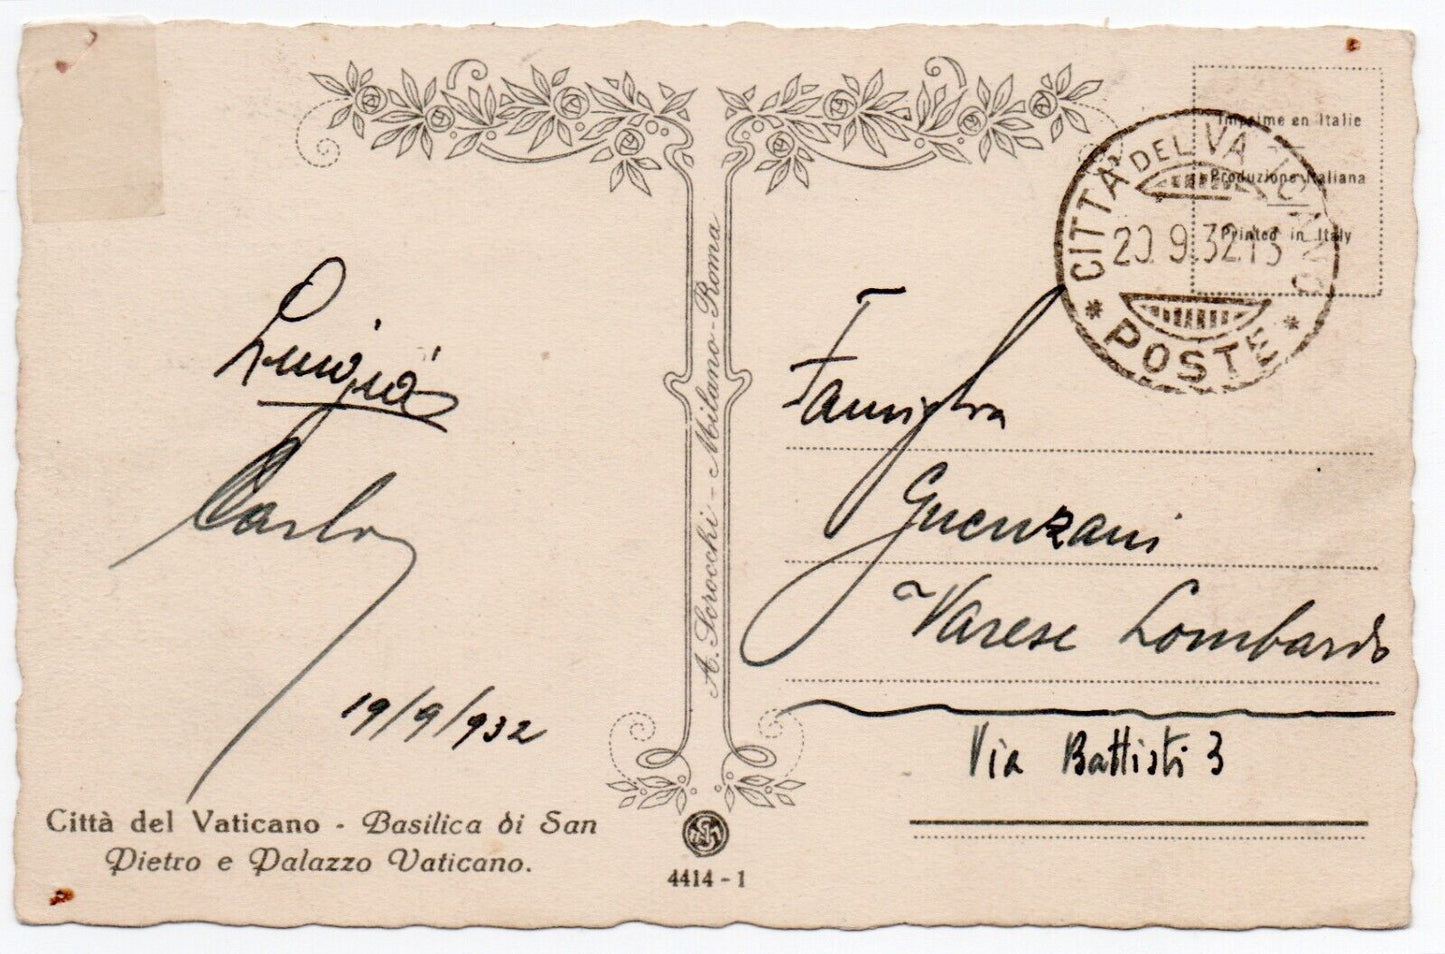 Imprime en Italie
Produzione Italiana
Printed in Italy
CITTÀ DEL VATICANO
20.9.32.13
* POSTE *
Luigia
Carlo
19/9/932
A. Scrocchi - Milano-Roma
Famiglia
Guenzani
Varese Lombardo
Via Battisti 3
Città del Vaticano - Basilica di San
Pietro e Palazzo Vaticano.
4414 - 1